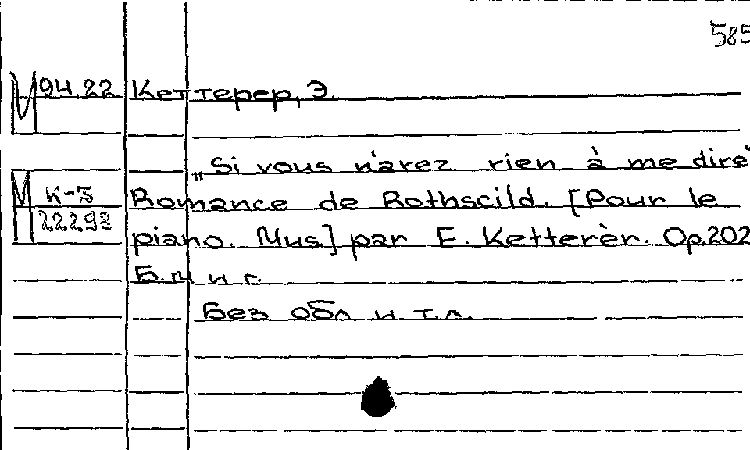 585
М 94.22 Кеттерер, Э.
„Si vous n'avez rien à me dire"
М К-3 Romance de Rothscild. [Pour le
22293 piano. Mus] par E. Ketterèr. Op.202
Б.м и г.
Без обл и т.л.